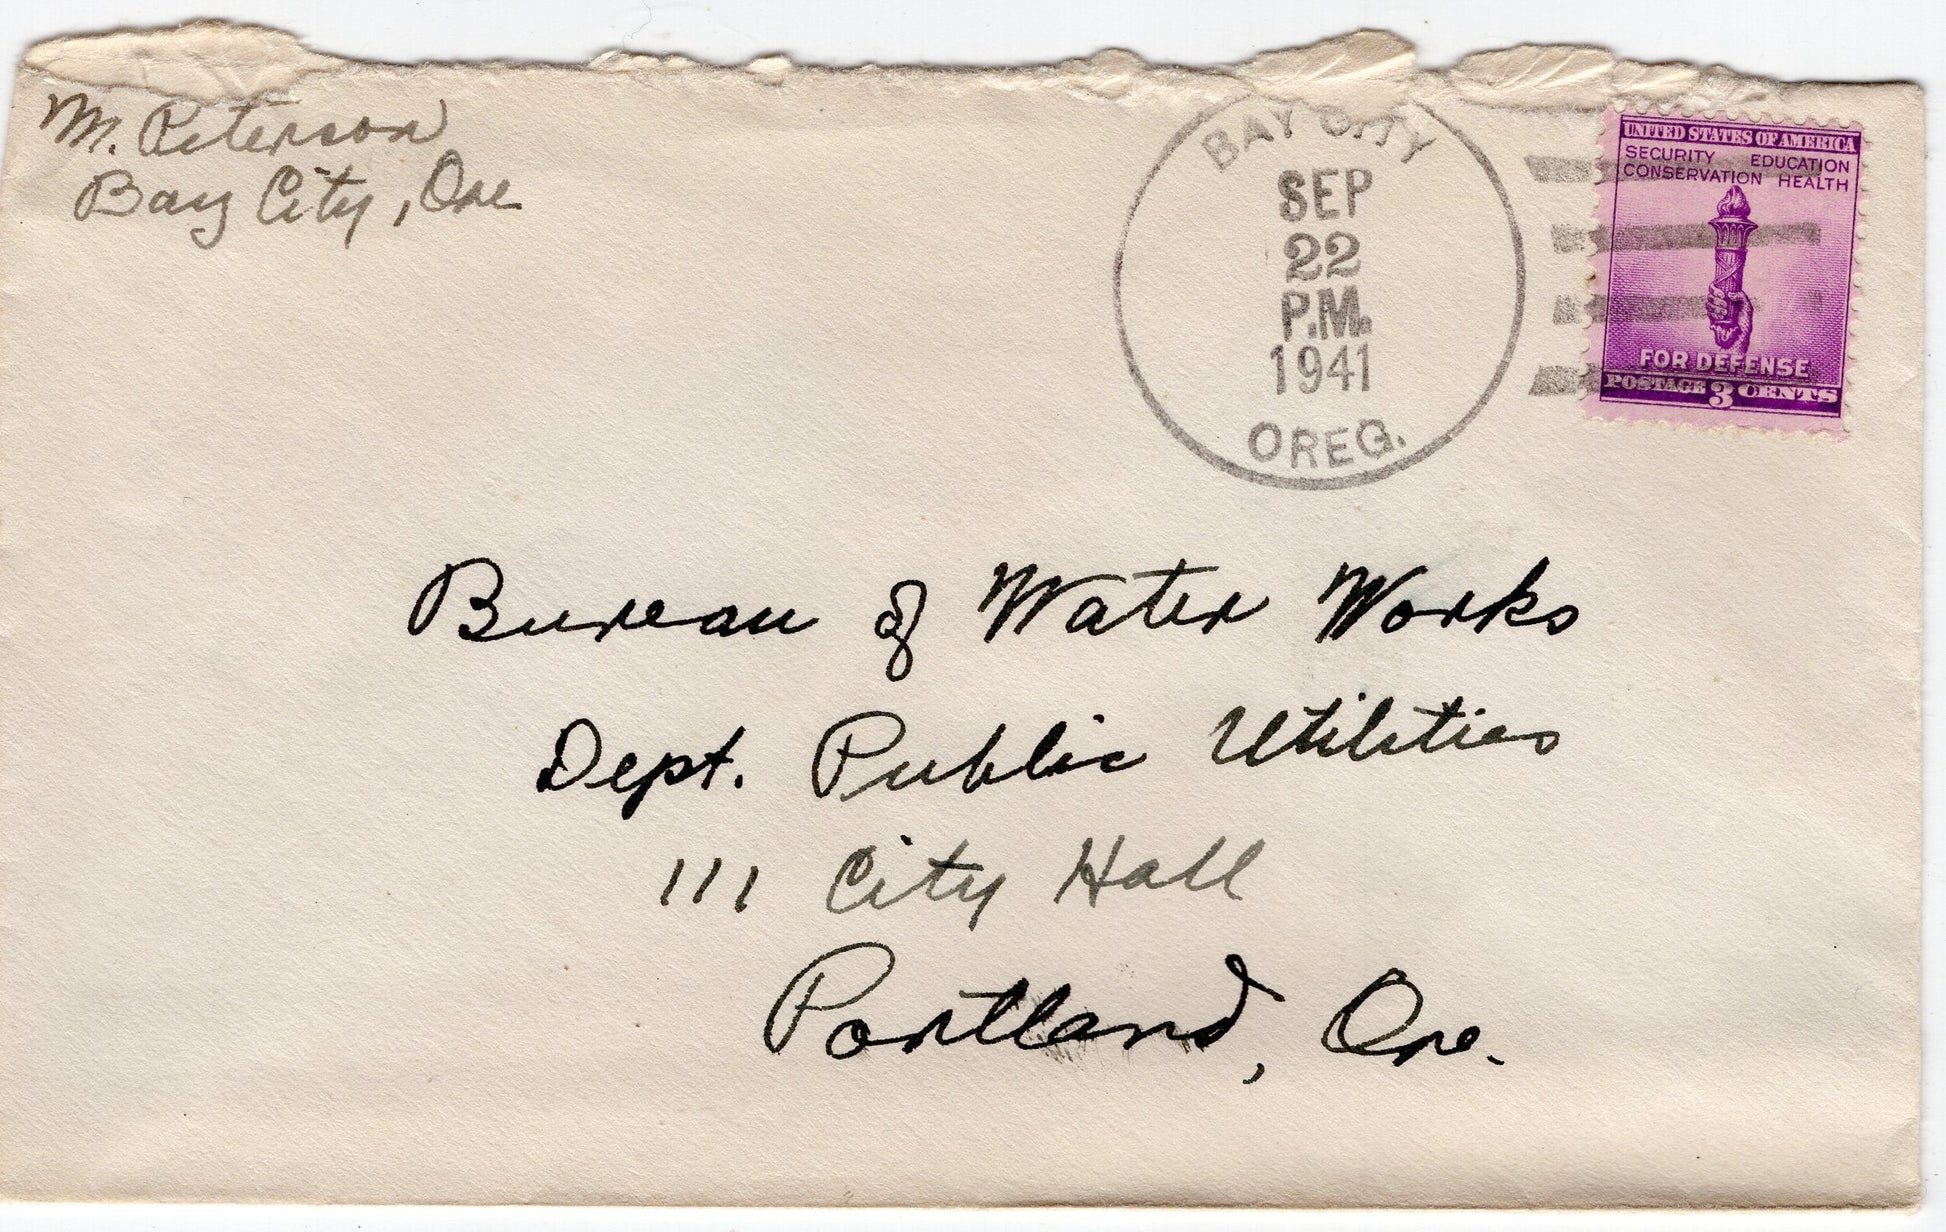 M. Peterson
Bay City, Ore
BAY CITY
SEP
22
P.M.
1941
OREG.
UNITED STATES OF AMERICA
SECURITY EDUCATION
CONSERVATION HEALTH
FOR DEFENSE
POSTAGE 3 CENTS
Bureau of Water Works
Dept. Public Utilities
111 City Hall
Portland, Ore.